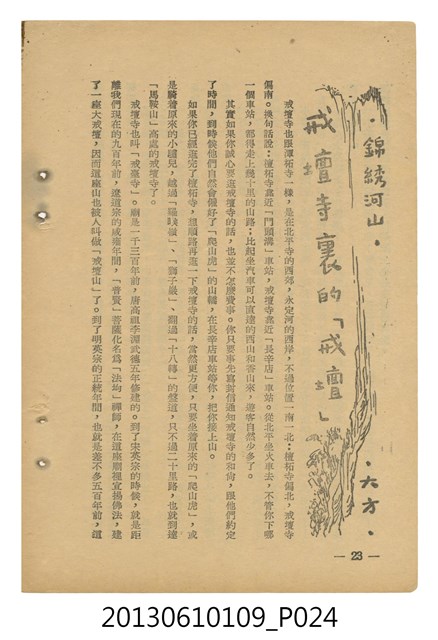 ·錦綉河山·
戒壇寺裏的「戒壇」
·大方·
戒壇寺也跟潭柘寺一樣，是在北平寺的西郊，永定河的西岸，不過位置一南一北：檀柘寺偏北，戒壇寺
偏南。換句話說：檀柘寺靠近「門頭溝」車站，戒壇寺靠近「長辛店」車站。從北平坐火車去，不管你下哪
一個車站，都得走上幾十里的山路；比起坐汽車可以直達的西山和香山來，遊客自然少多了。
其實如果你誠心要逛戒壇寺的話，也並不怎麼費事。你只要事先寫封信通知戒壇寺的和尚，跟他們約定
了時間，到時候他們自然會備好了「爬山虎」的山轎，在長辛店車站等你，把你接上山。
如果你已經逛完了檀柘寺，想順路再逛一下戒壇寺的話，當然更方便，只要坐着原來的「爬山虎」，或
是騎着原來的小驢兒，越過「羅睺嶺」、「獅子巖」、闖過「十八轉」的盤道，只不過二十里路，也就到達
「馬鞍山」高處的戒壇寺了。
戒壇寺也叫「戒臺寺」。廟是一千三百年前，唐高祖李淵武德五年修建的。到了宋英宗的時候，就是距
離我們現在的九百年前，遼道宗的咸雍年間，「普賢」菩薩化名爲「法均」禪師，在這座廟裡宣揚佛法，建
了一座大戒壇，因而這座山也被人叫做「戒壇山」了。到了明英宗的正統年間，也就是差不多五百年前，這
— 23 —
20130610109_P024